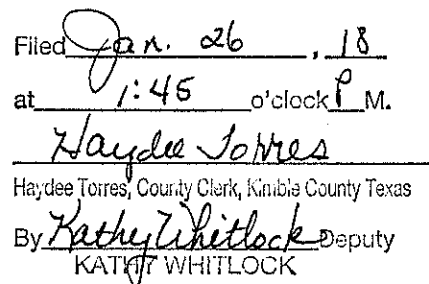 Filed Jan. 26, 18
at 1:45 o'clock P M.
Haydee Torres
Haydee Torres, County Clerk, Kimble County Texas
By Kathy Whitlock Deputy
KATHY WHITLOCK